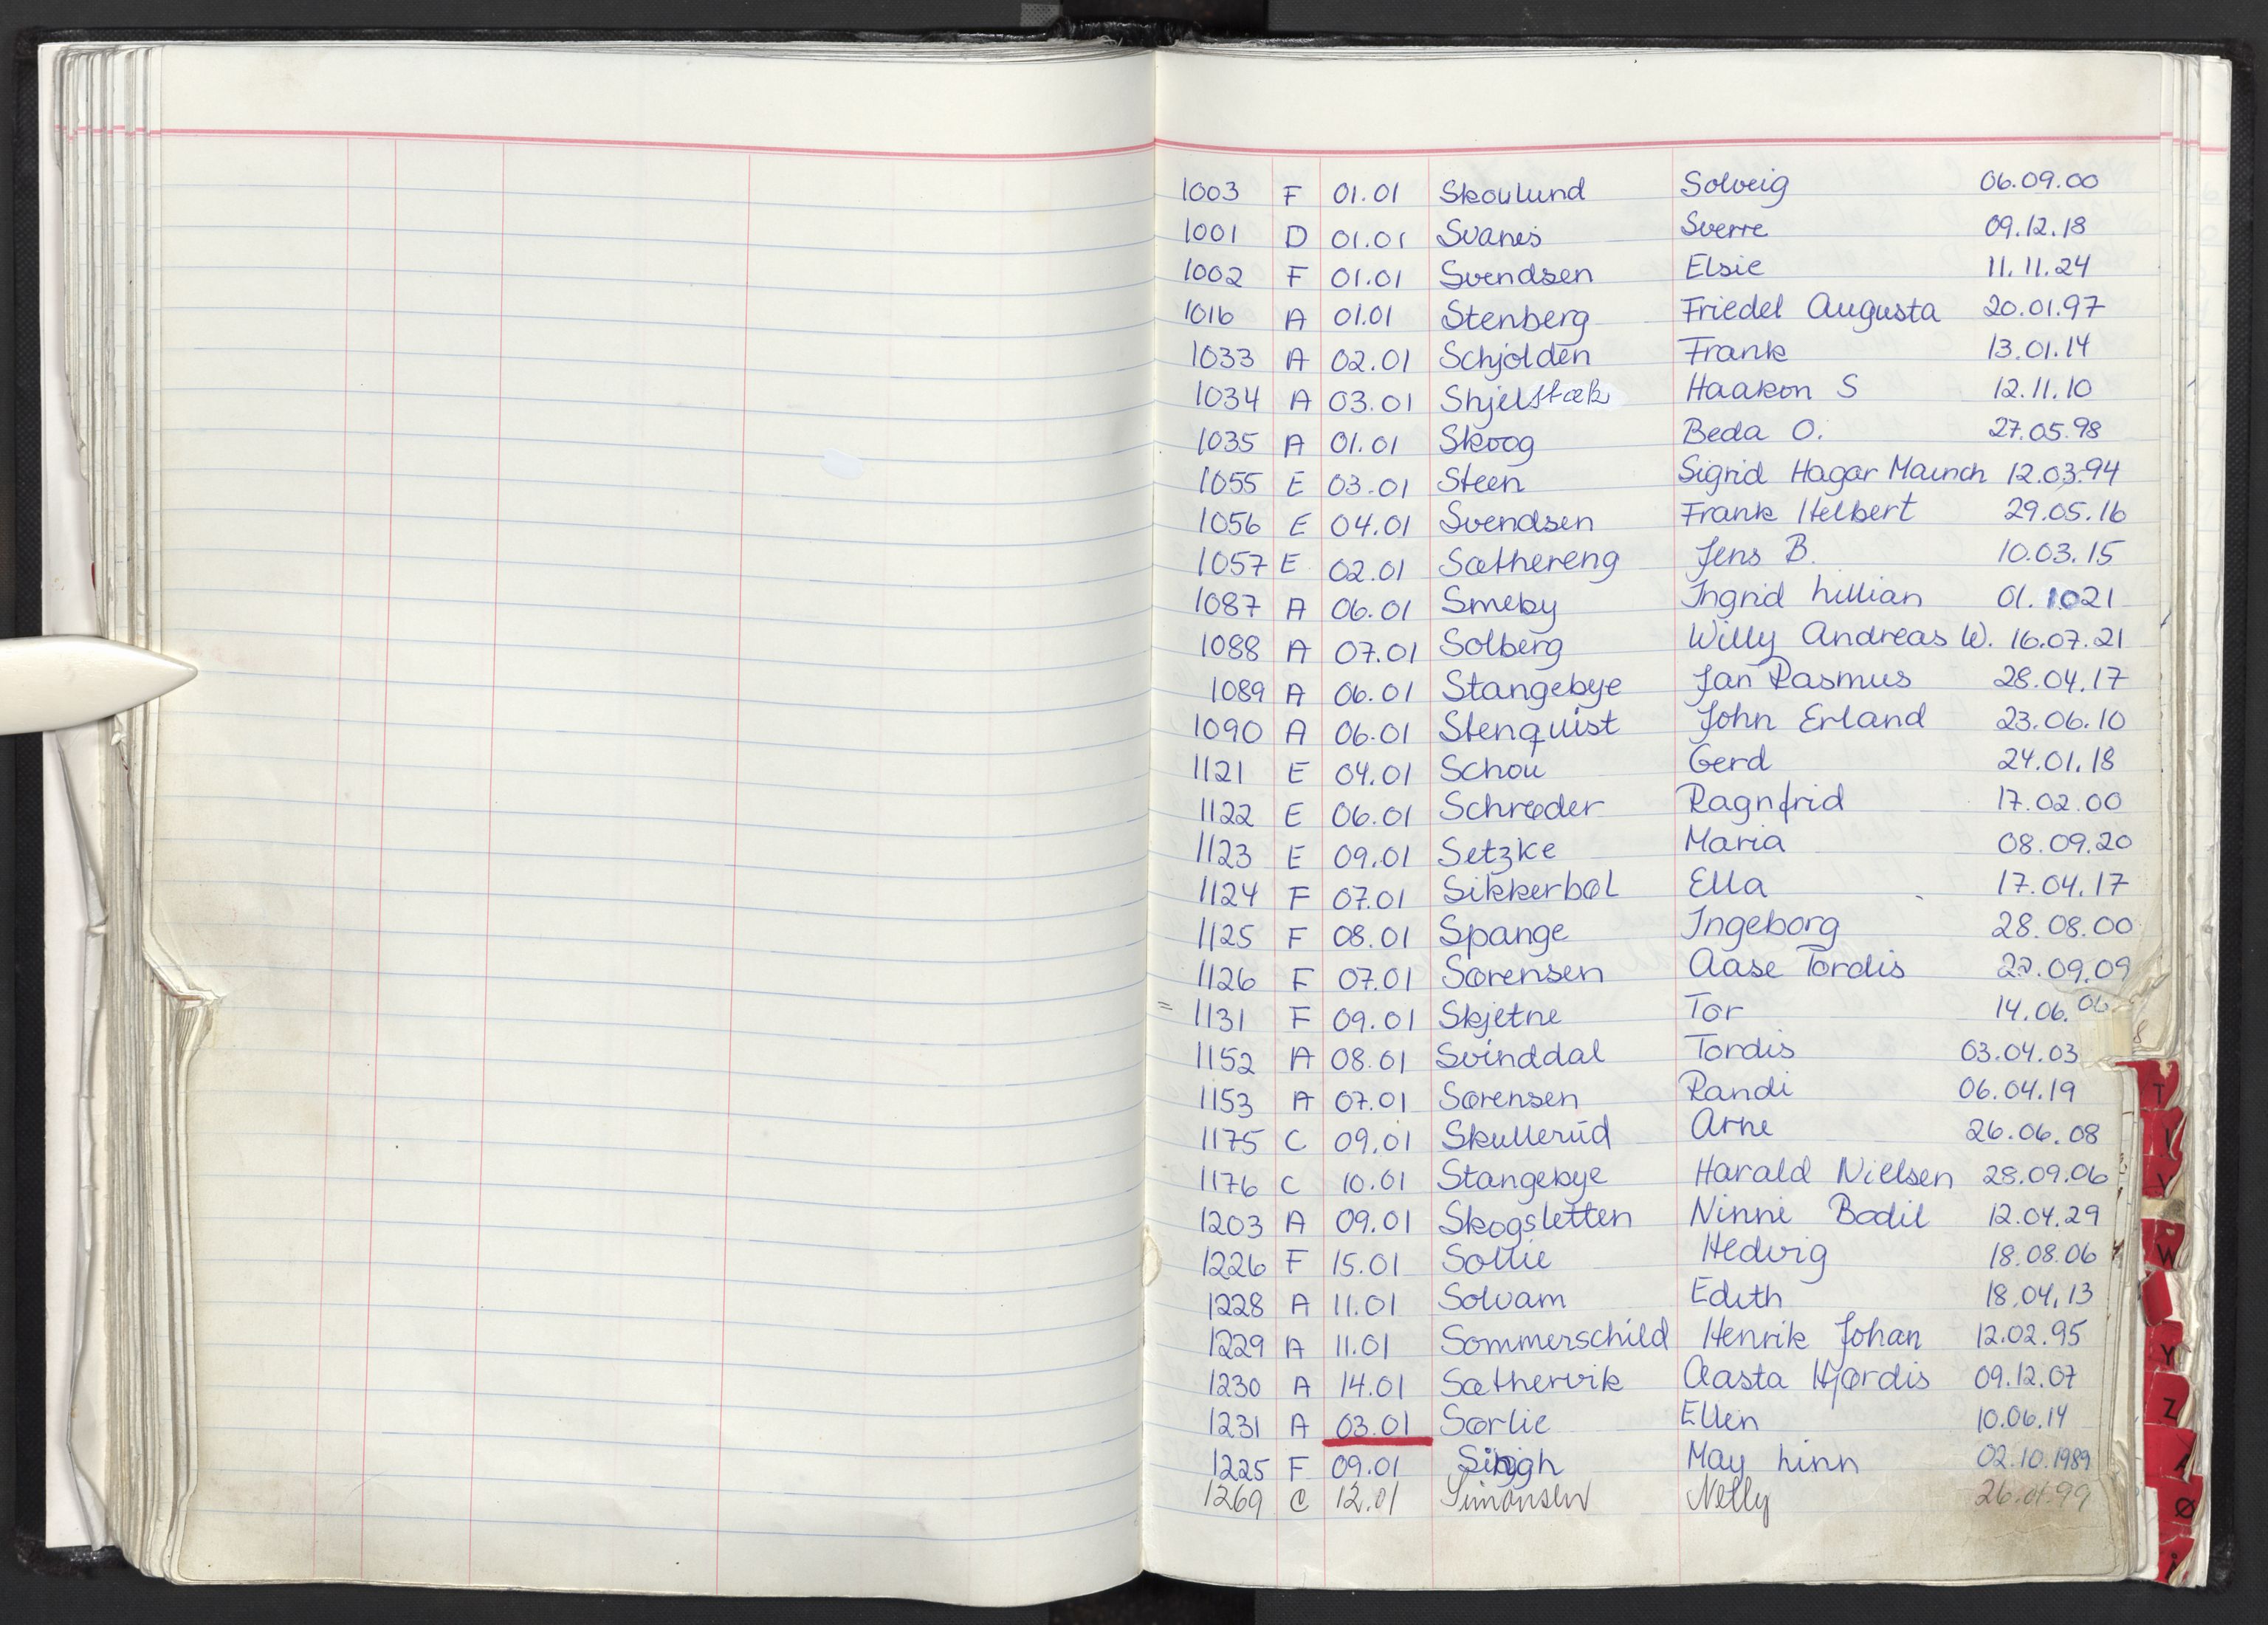 1003 F 01.01 Skoulund Solveig 06.09.00
1001 D 01.01 Svanes Sverre 09.12.18
1002 F 01.01 Svendsen Elsie 11.11.24
1016 A 01.01 Stenberg Friedel Augusta 20.01.97
1033 A 02.01 Schjolden Frank 13.01.14
1034 A 03.01 Shjelstæk Haakon S 12.11.10
1035 A 01.01 Skoog Beda O. 27.05.98
1055 E 03.01 Steen Sigrid Hagar Maunch 12.03.94
1056 E 04.01 Svendsen Frank Helbert 29.05.16
1057 E 02.01 Sæthereng Jens B. 10.03.15
1087 A 06.01 Smeby Ingrid Lillian 01.1021
1088 A 07.01 Solberg Willy Andreas W. 16.07.21
1089 A 06.01 Stangebye Jan Rasmus 28.04.17
1090 A 06.01 Stenquist John Erland 23.06.10
1121 E 04.01 Schou Gerd 24.01.18
1122 E 06.01 Schrøder Ragnfrid 17.02.00
1123 E 09.01 Setzke Maria 08.09.20
1124 F 07.01 Sikkerbøl Ella 17.04.17
1125 F 08.01 Spange Ingeborg 28.08.00
1126 F 07.01 Sørensen Aase Tordis 22.09.09
= 1131 F 09.01 Skjetne Tor 14.06.06
1152 A 08.01 Svinddal Tordis 03.04.03
1153 A 07.01 Sørensen Randi 06.04.19
1175 C 09.01 Skullerud Arne 26.06.08
1176 C 10.01 Stangebye Harald Nielsen 28.09.06
1203 A 09.01 Skogsletten Ninni Bodil 12.04.29
1226 F 15.01 Sollie Hedvig 18.08.06
1228 A 11.01 Solvam Edith 18.04.13
1229 A 11.01 Sommerschild Henrik Johan 12.02.95
1230 A 14.01 Sæthervik Aasta Hjørdis 09.12.07
1231 A 03.01 Sørlie Ellen 10.06.14
1225 F 09.01 Singh May Linn 02.10.1989
1269 C 12.01 Simonsen Nelly 26.01.99
T
V
W
Y
Z
Ø